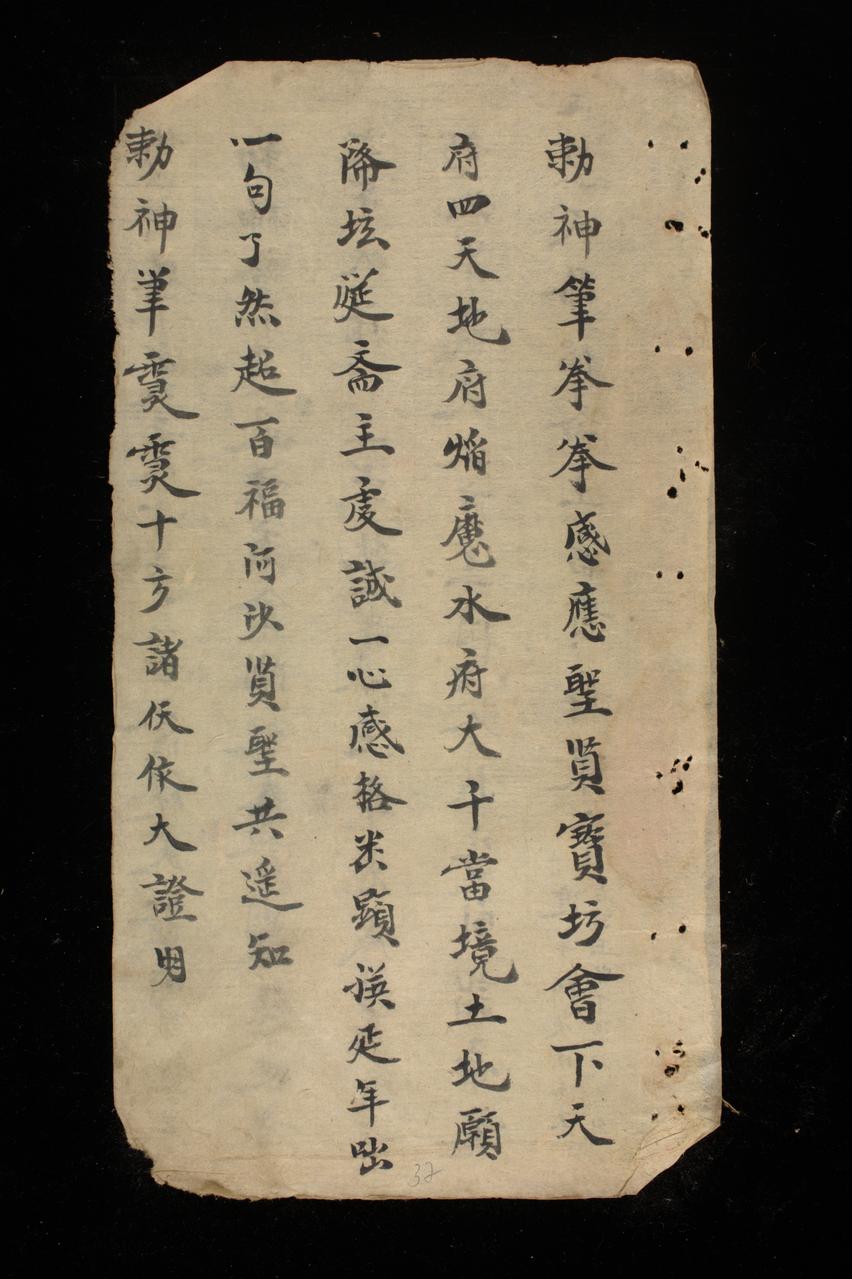 勅神筆拳拳感應聖賢寳坊會下天
府四天地府焰魔水府大千當境土地願
降坛筵斋主虔誠一心感格米顕祺延年咄
一句了然超百福河沙賢聖共遥知
勅神筆霊霊十方諸仸依大證明
32